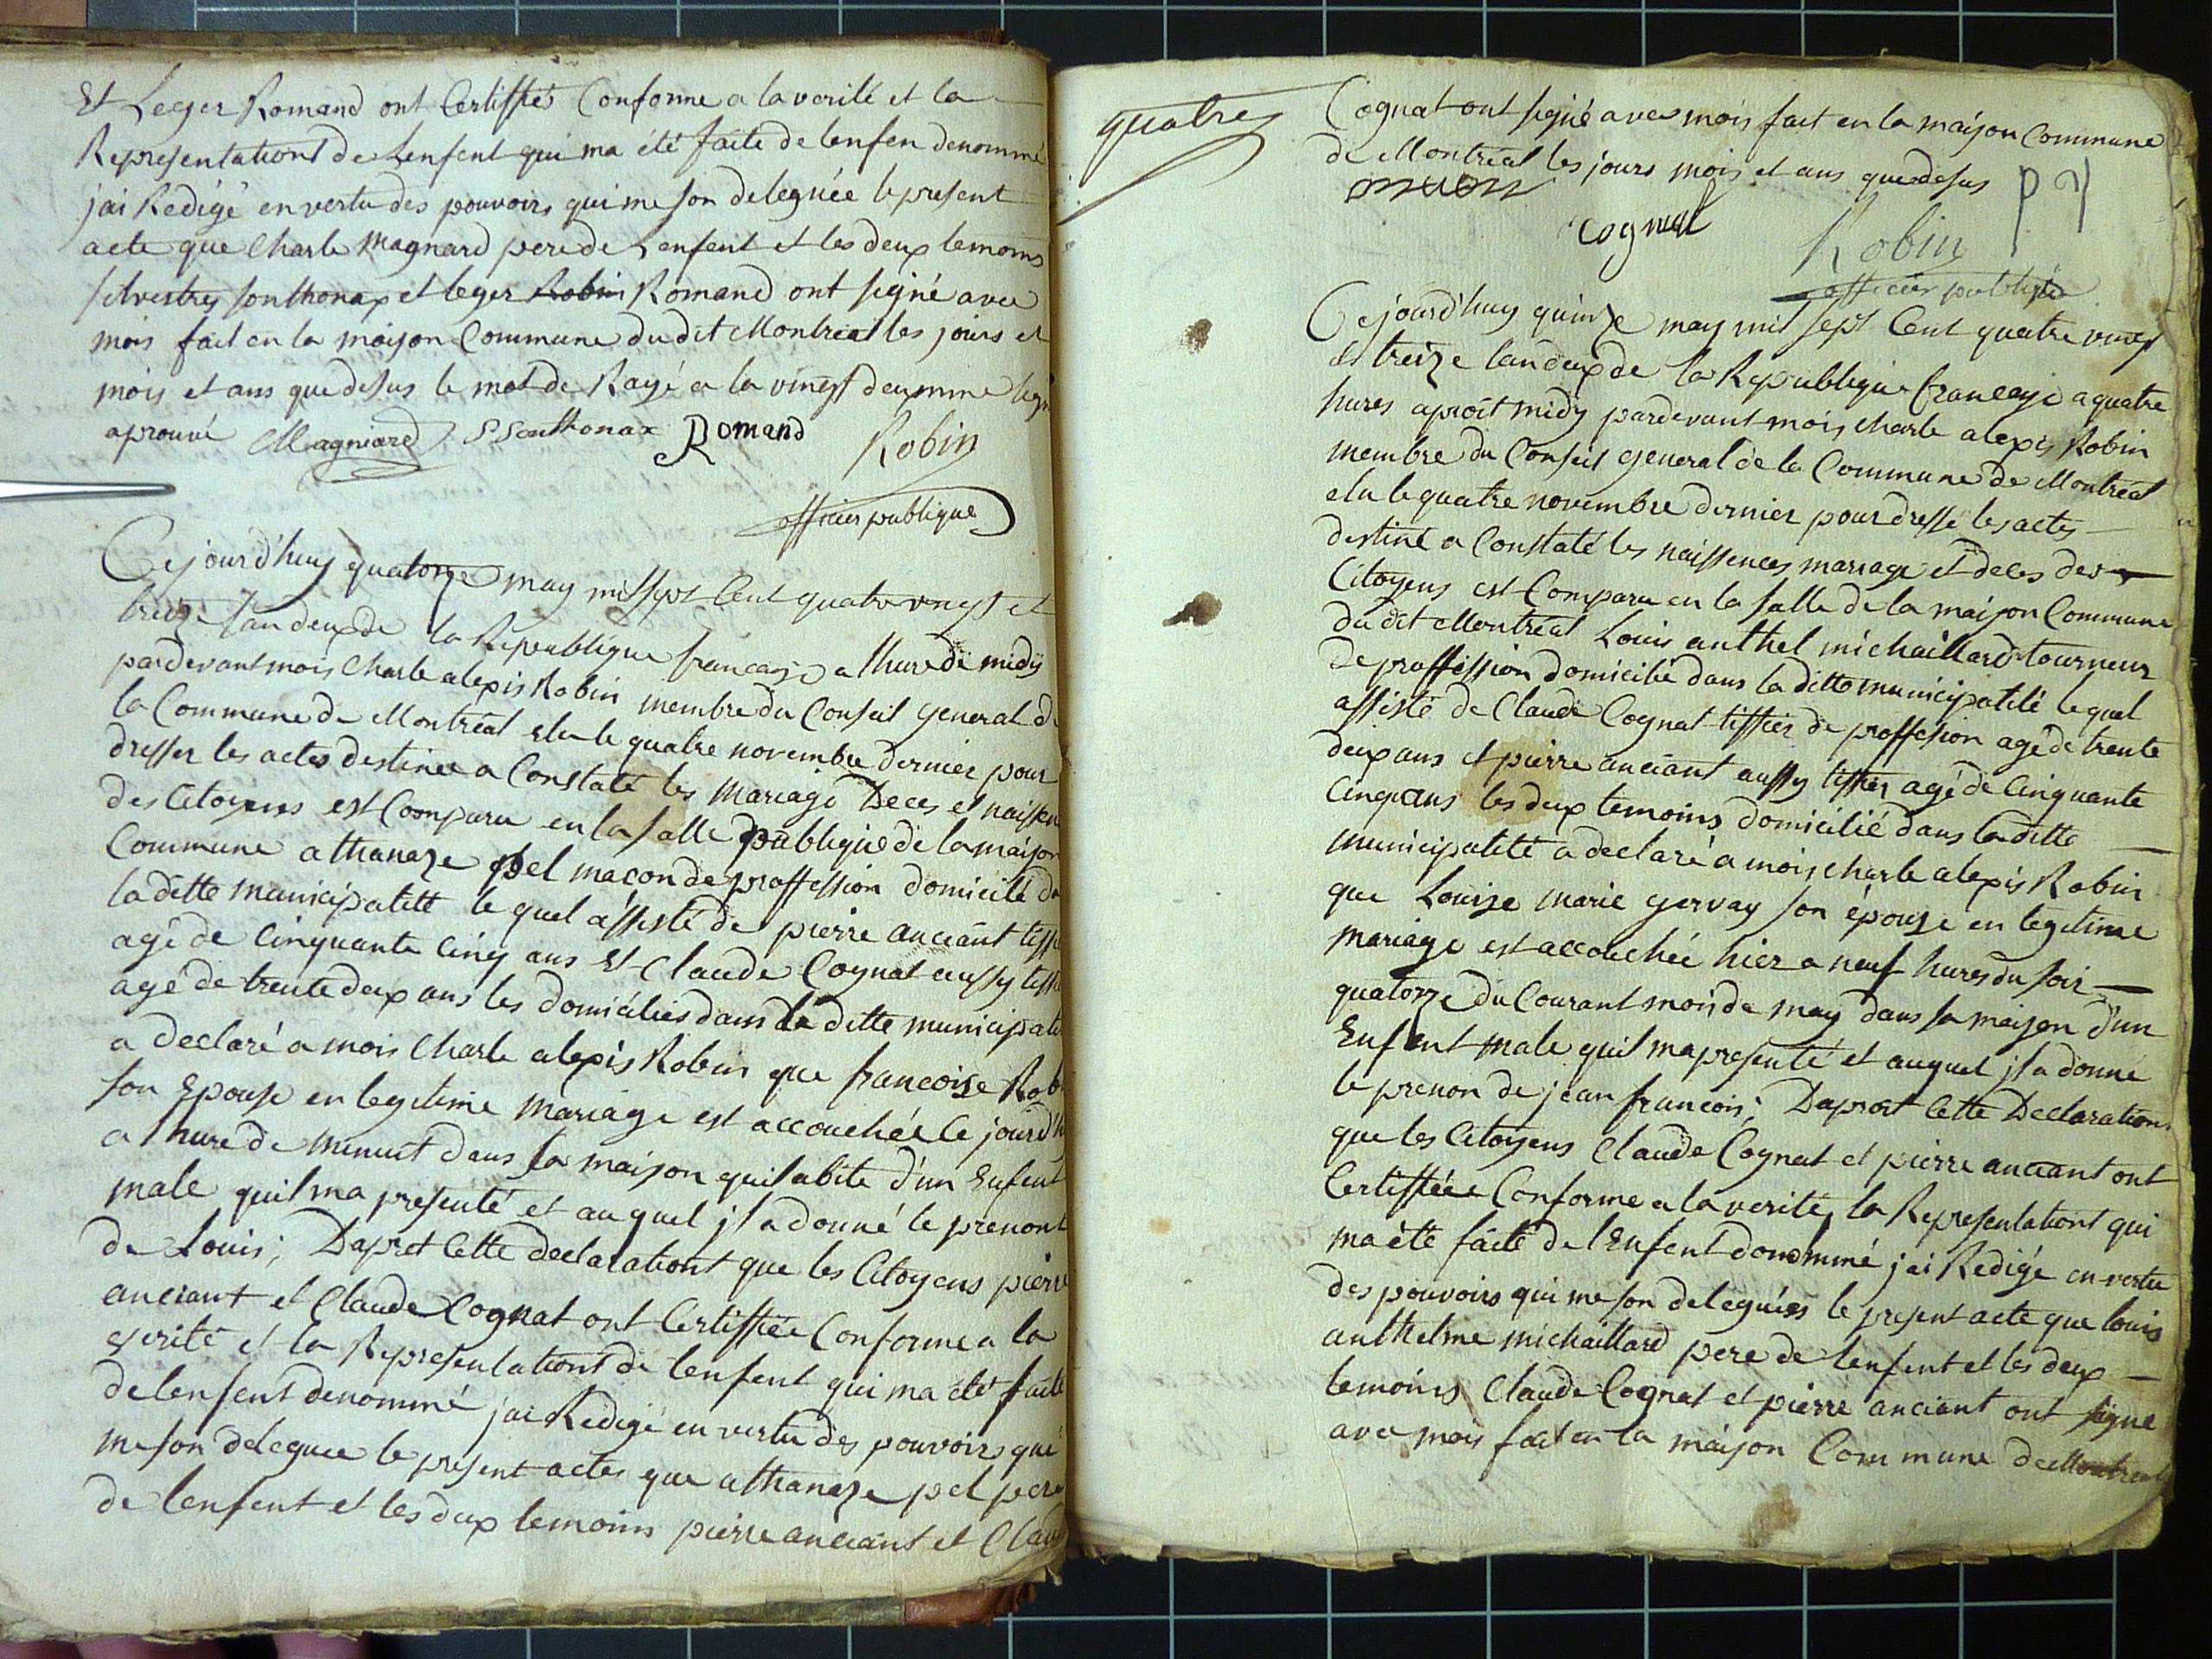 Et Leger Romand ont Certiffiés Conforme a la verité et la
Representationt de Lenfent qui ma été faite de lenfen denommé
jai Redigé en vertu des pouvoirs qui me son deleguée le present
acte que Charle Magnard pere de Lenfent et les deux temoins
silvestres sonthonax et leger Robin Romand ont signé avec
mois fait en la maison Commune du dit Montreal les jours et
mois et ans que desus le mot de Rayé a la vingt deumme
aprouvé Magniard S Sonthonax Romand Robin
officier publique
Cejourd'huy quatorze may mil sept Cent quatre vingt et
treize lan deux de la Republique francaise a lhure de midy
pardevant mois Charle alexis Robin membre du Conseil general d
la Commune de Montreal elu le quatre novembre dernier pour
dresser les actes destinee a Constaté les Mariage Deces et naissen
des Citoyens est Comparu en la salle publique de la maison
Commune athanaze pel macon de proffession domicilé d
la ditte municipalité le quel assisté de pierre anciant tiss
agé de Cinquante Cinq ans Et Claude Cognat aussy tiss
agé de trente deux ans les domiciliés dans la ditte municipali
a declaré a mois Charle alexis Robin que francoise Rob
son Epouse en legitime mariage est accouchée Ce jourd'h
a lhure de Minuit dans la maison quil abite d'un Enfent
male quil ma presenté et au quel jl a donné le prenont
de Louis; Dapret Cette declarationt que les Citoyens pierre
anciant et Claude Cognat ont Certiffiée Conforme a la
verité et la Representationt de lenfent qui ma été faite
de lenfent denommé jai Redigé en vertu des pouvoirs qui
me son deleguée le present actes que athanaze pel pere
de lenfent et les deux temoins pierre anciant et Clau
quatres
Cognat ont signé avec mois fait en la maison Commune
de Montreal les jours mois et ans que desus
Cognat p
Robin
officier publique
Cejourd'huy quinze may mil sept Cent quatre vingt
et treize lan deux de la Republique francaise a quatre
hures aproit midy pardevant mois Charle alexis Robin
membre du Conseil general de la Commune de Montreal
elu le quatre novembre dernier pour dressé les actes
destiné a Constaté les naissences mariage et deces des
Citoyens est Comparu en la salle de la maison Commune
du dit Montreal Louis anthel michaillard tourneur
de proffession domicilié dans la ditte municipalité lequel
assisté de Claude Cognat tissier de proffesion agé de trente
deux ans et pierre anciant aussy tissier agé de Cinquante
Cinq ans les deux temoins domicilié dans la ditte
municipalité a declaré a mois Charle alexis Robin
que Louise marie gervay son épouse en legitime
mariage est accouchée hier a neuf hures du soir
quatorze du Courant mois de may dans sa maison d'un
Enfent male quil ma presenté et auquel jl a donne
le prenon de jean francois; Daproit Cette Declarationt
que les Citoyens Claude Cognat et pierre anciant ont
Certiffiée Conforme a la verité, la Representationt qui
ma été faite de l'Enfent denommé jai Redigé en vertu
des pouvoirs qui me son deleguées le present acte que louis
anthelme michaillard pere de lenfent et les deux
temoins Claude Cognat et pierre anciant ont signe
avec mois fait en la maison Commune de Montreal